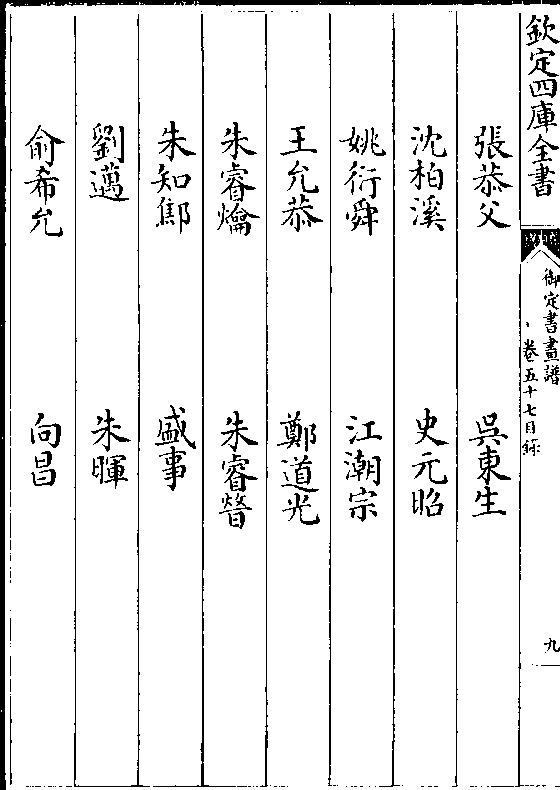 欽定四庫全書
御定書畫譜
卷五十七目錄
九
張恭父
吳東生
沈柏溪
史元昭
姚衍舜
江潮宗
王允恭
鄭道光
朱睿爚
朱睿㬜
朱知𤉡
盛事
劉邁
朱暉
俞希允
向昌